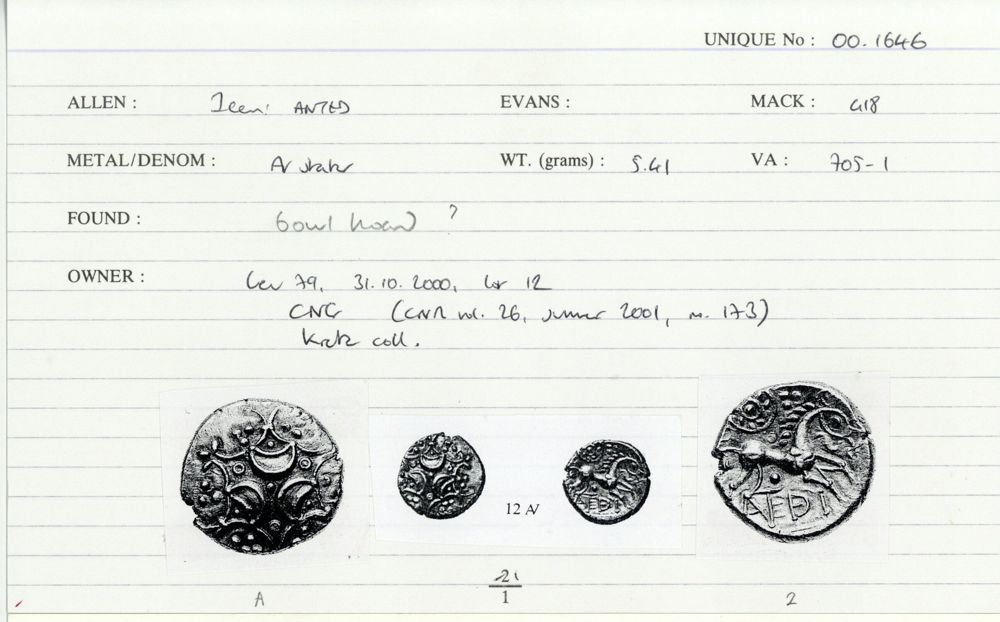 UNIQUE No : 00.1646
ALLEN : Iceni ANTED EVANS : MACK : 418
METAL/DENOM : AV stater WT. (grams) : 5.41 VA : 705-1
FOUND : bowl hoard ?
OWNER : Leu 79, 31.10.2000, lot 12
CNG (CNR vol. 26, summer 2001, no. 173)
Kretz coll.
12 AV
ATEDI
21
A 1 2